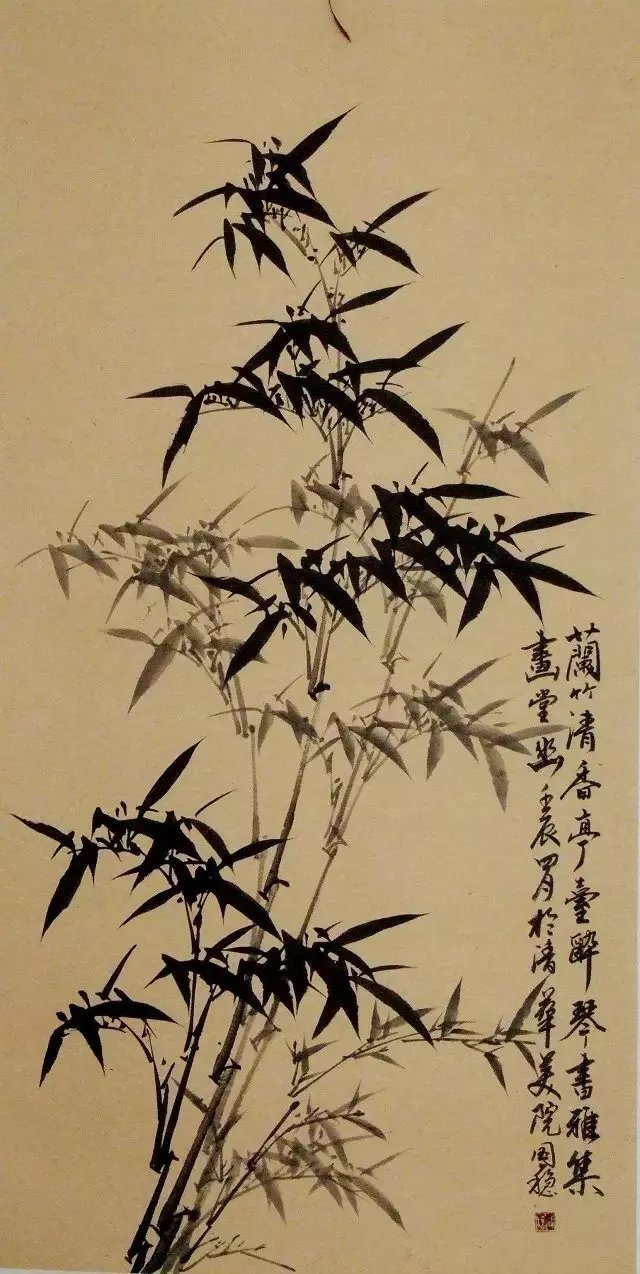 蘭竹清香亭臺醉琴書雅集
畫堂幽壬辰四月於清華美院国稳